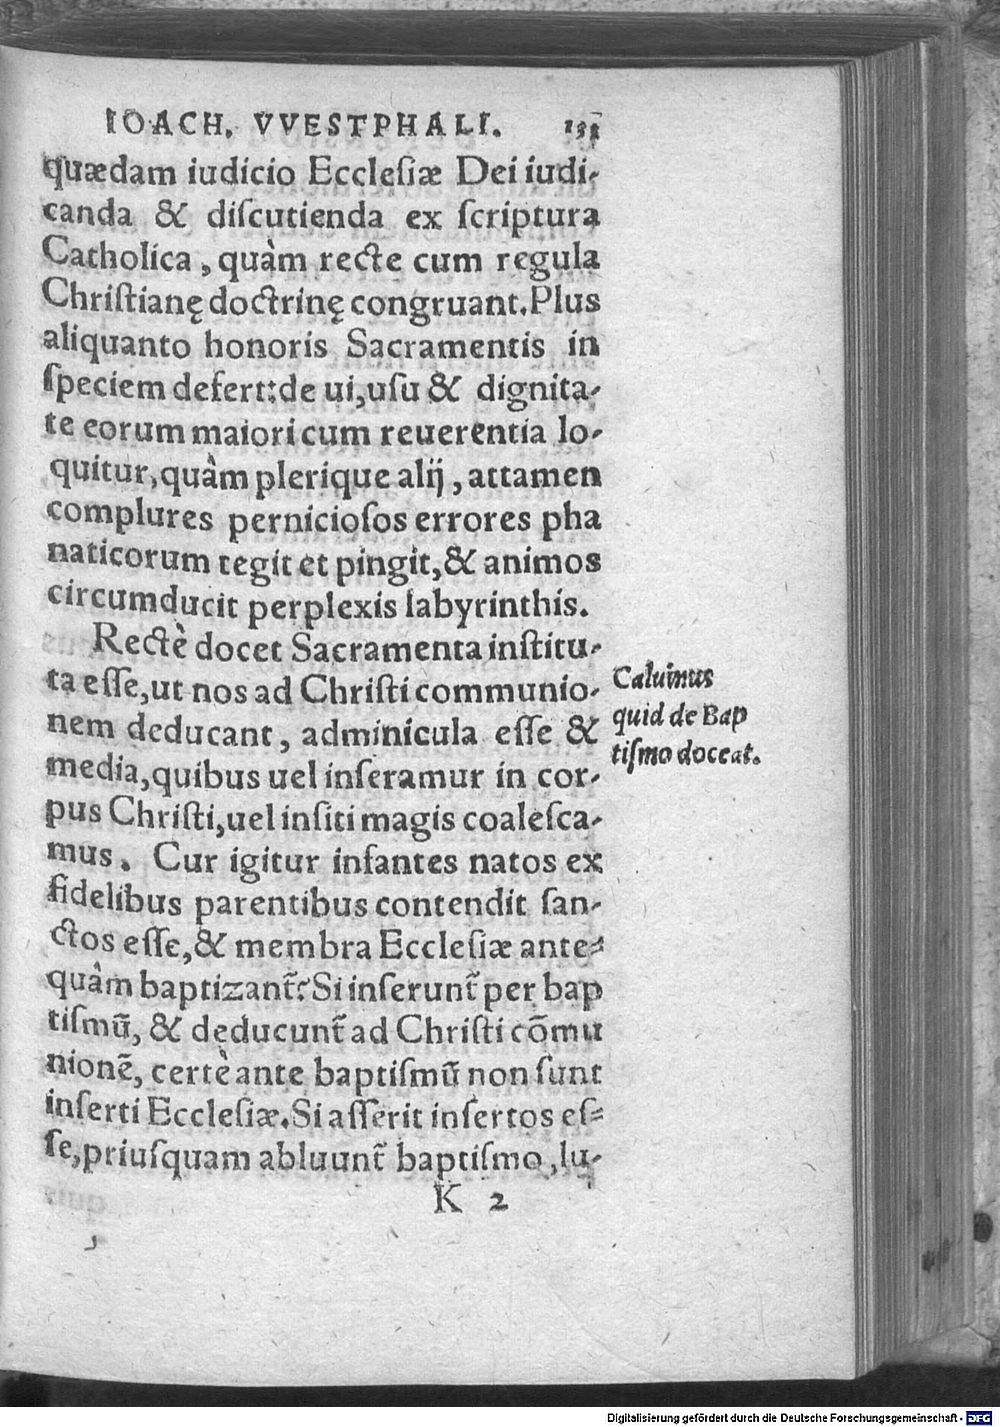 IOACH. VVESTPHALI.
quædam iudicio Ecclesiæ Dei iudi-
canda & discutienda ex scriptura
Catholica, quàm recte cum regula
Christianę doctrinę congruant. Plus
aliquanto honoris Sacramentis in
speciem defert: de ui, usu & dignita-
te eorum maiori cum reuerentia lo-
quitur, quàm plerique alij, attamen
complures perniciosos errores pha
naticorum tegit et pingit, & animos
circumducit perplexis labyrinthis.
Rectè docet Sacramenta institu-
ta esse, ut nos ad Christi communio-
nem deducant, adminicula esse &
media, quibus uel inseramur in cor-
pus Christi, uel insiti magis coalesca-
mus. Cur igitur infantes natos ex
fidelibus parentibus contendit san-
ctos esse, & membra Ecclesiæ ante-
quàm baptizant̃? Si inserunt̃ per bap
tismũ, & deducunt̃ ad Christi cõmu
nionẽ, certè ante baptismũ non sunt
inserti Ecclesiæ. Si asserit insertos es-
se, priusquam abluunt̃ baptismo, lu-
K 2
Caluinus
quid de Bap
tismo doceat.
Digitalisierung gefördert durch die Deutsche Forschungsgemeinschaft - DFG